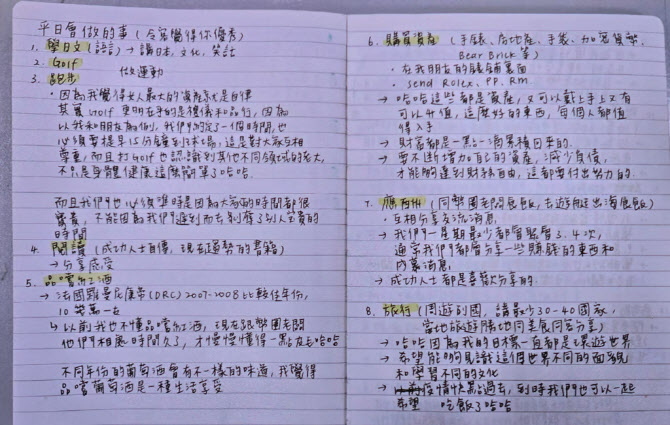 平日會做的事 (令客覺得你優秀)
1. 學日文 (語言) → 講日本, 文化, 笑話
2. Golf
3. 跑步 做運動
・因為我覺得女人最大的資產就是自律
其實 Golf 更明在乎的是禮儀和品行, 因為
以我和朋友為例, 我們約定了一個時間, 也
必須要提早15分鐘到球場, 這是對大家互相
尊重, 而且打Golf也認識到其他不同領域的強大,
不只是身體健康這麼簡單了哈哈.
而且我們也必須準時是因為大家的時間都很
寶貴, 不能因為我們遲到而去剝奪了別人寶貴的
時間
4. 閱讀 (成功人士自傳, 現在趨勢的書籍)
→ 分享感受
5. 品嚐紅酒
→ 法國羅曼尼康帝 (DRC) 2007-2008比較佳年份,
10幾萬一支
↳ 以前我也不懂品嚐紅酒, 現在跟幣圈老闆
他們相處時間久了, 才慢慢懂得一點皮毛哈哈
不同年份的葡萄酒會有不一樣的味道, 我覺得
品嚐葡萄酒是一種生活享受
6. 購買資產 (手錶、房地產、手袋、加密貨幣,
Bear Brick 等)
・在我朋友的錶舖裏面
・send Rolex, PP, RM
→ 哈哈這些都是資產, 又可以戴上手上又有
可以升值, 這麼好的東西, 每個人都值
得入手
→ 財富都是一點一滴累積回來的.
→ 要不斷增加自己的資產, 減少負債,
才能夠達到財務自由, 這都要付出努力的.
7. 應酬 (同幣圈老闆食飯, 去遊艇出海食飯)
・互相分享交流消息
→ 我們一星期最少都會聚會 3.4次,
通常我們都會分享一些賺錢的東西和
內幕消息,
→ 成功人士都是喜歡分享的
8. 旅行 (周遊列國, 講最少30-40國家,
當地旅遊勝地同美食同客分享)
→ 哈哈因為我的目標一直都是環遊世界
→ 希望能夠見識這個世界不同的面貌
和學習不同的文化
→ 希望疫情快點過去, 到時我們也可以一起
吃飯了哈哈